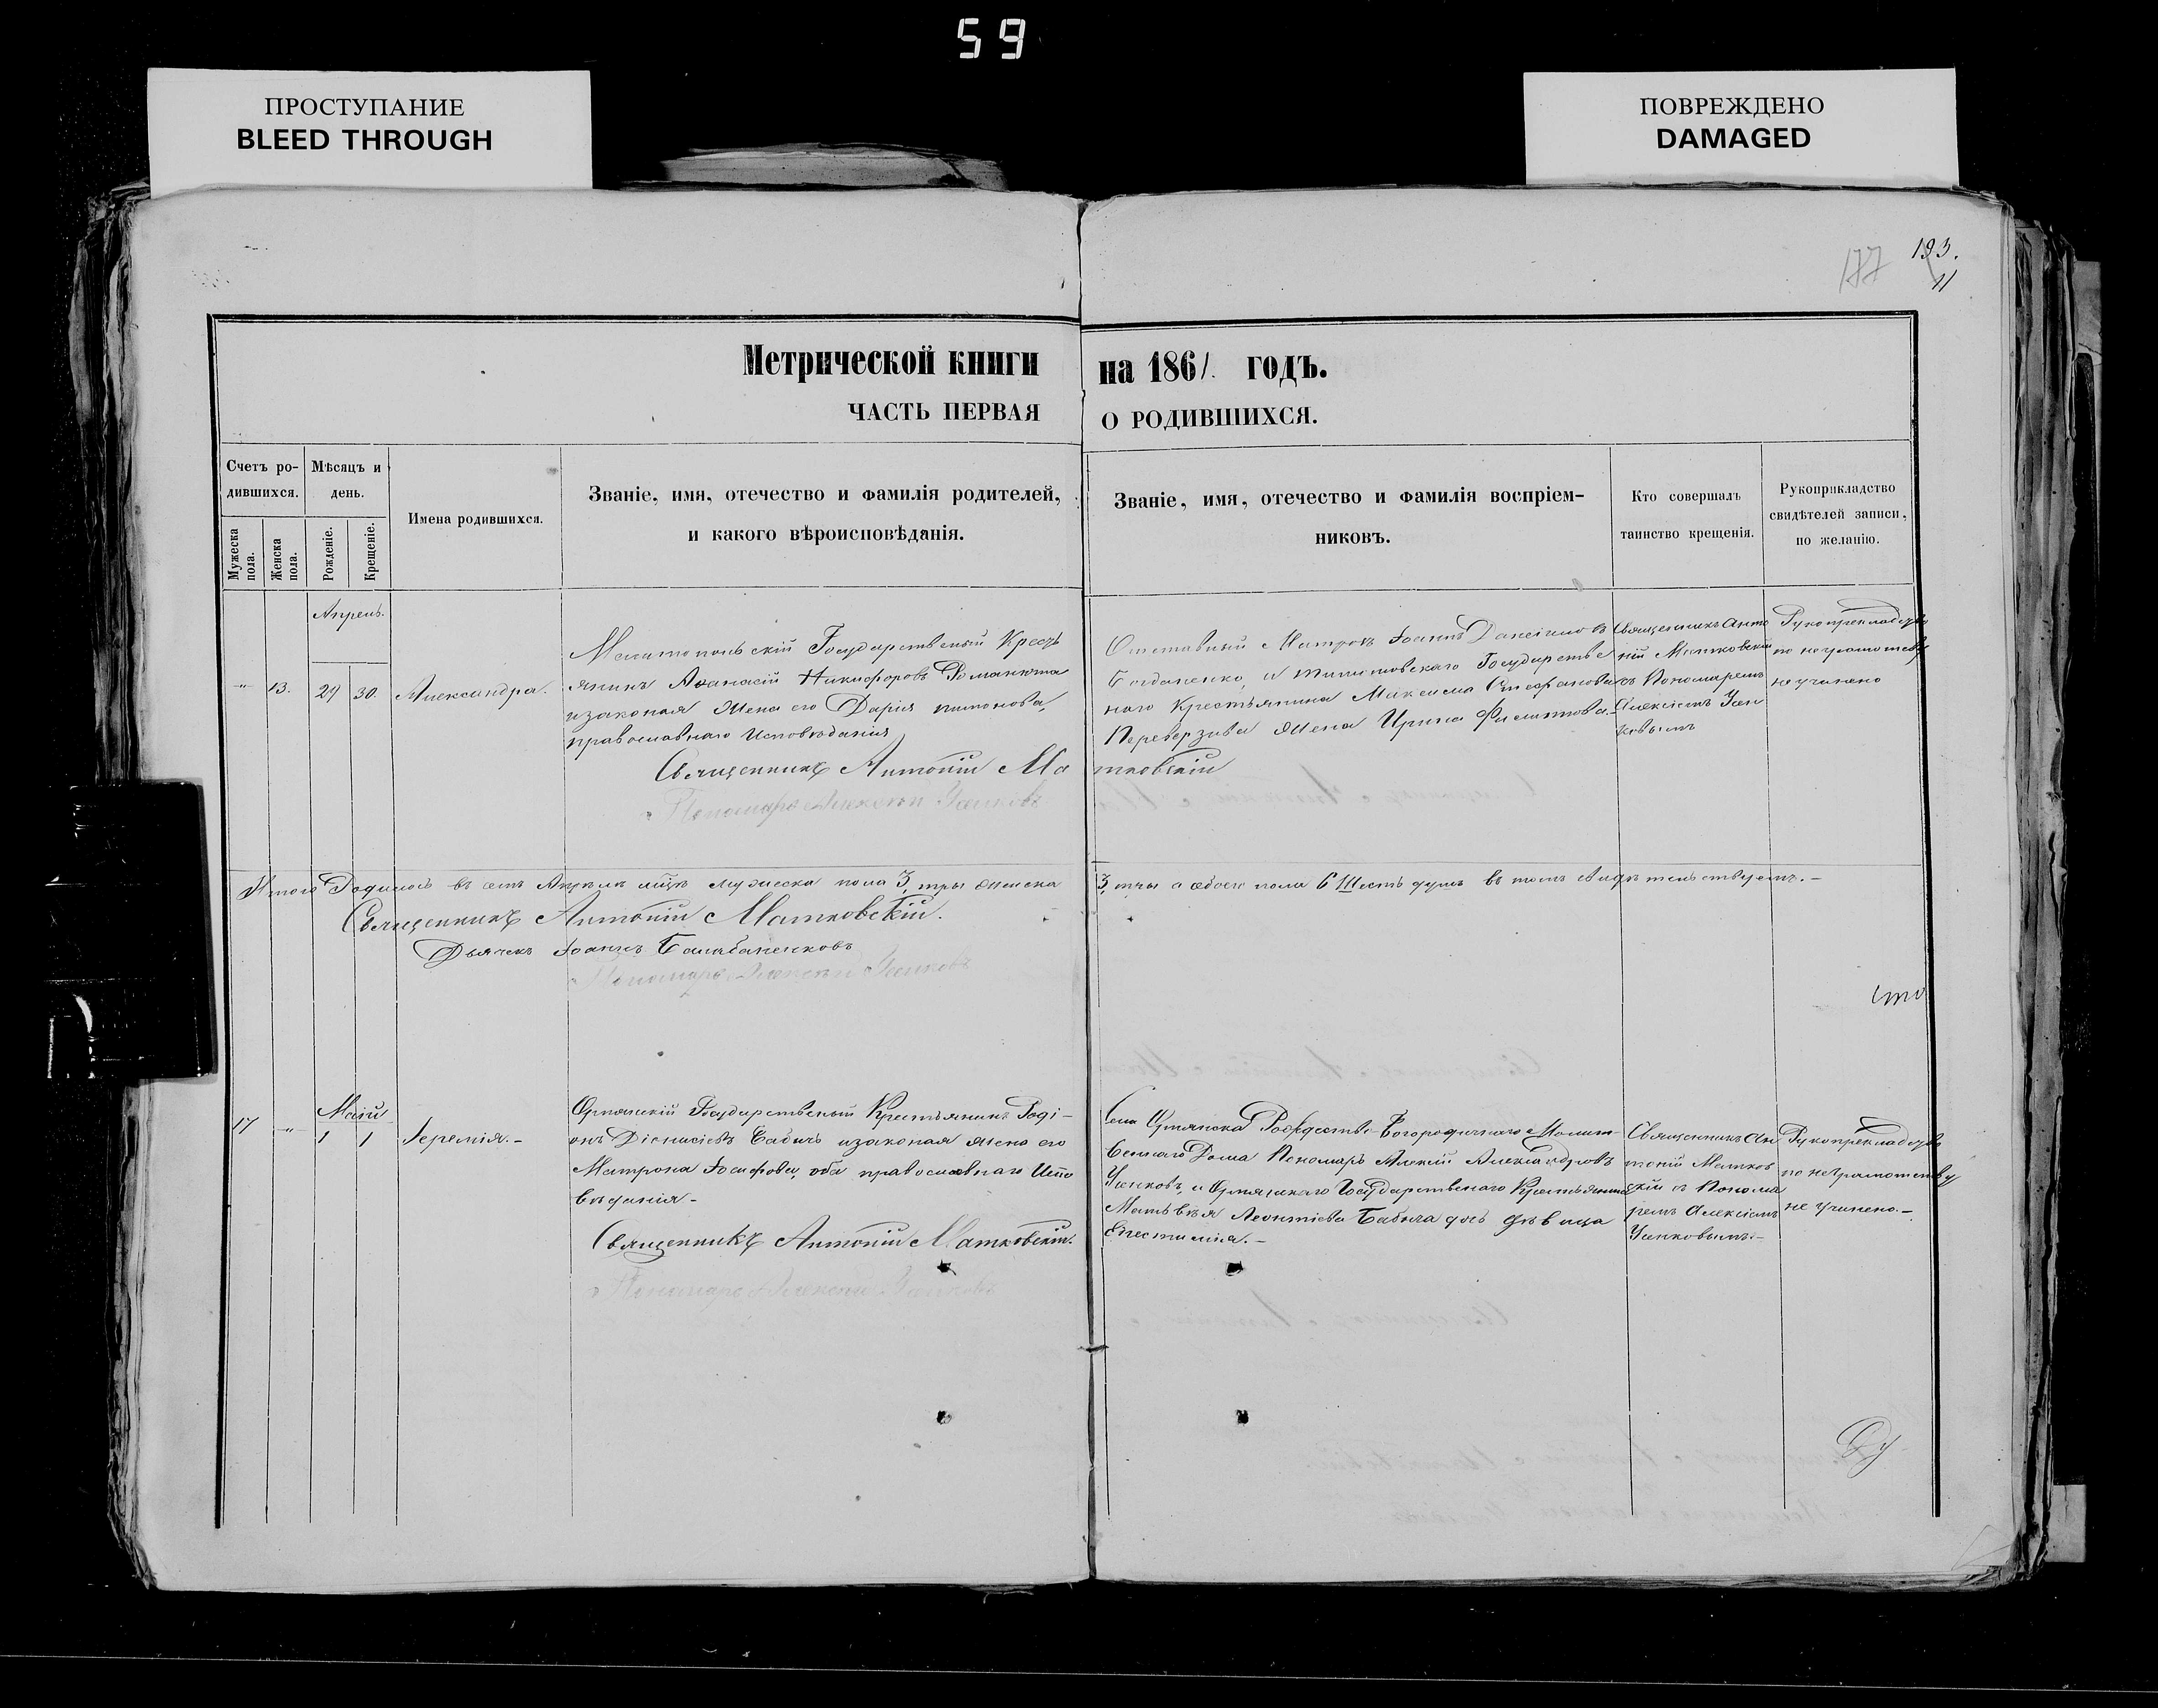 59
ПРОСТУПАНИЕ
BLEED THROUGH
ПОВРЕЖДЕНО
DAMAGED
177
193.
11
Метрической книги на 1861. годъ.
ЧАСТЬ ПЕРВАЯ О РОДИВШИХСЯ.
Счетъ ро-
дившихся.
Мѣсяцъ и
день.
Мужеска
пола.
Женска
пола.
Рожденіе.
Крещеніе.
Имена родившихся.
Званіе, имя, отечество и фамилія родителей,
и какого вѣроисповѣданія.
Званіе, имя, отечество и фамилія воспріем-
никовъ.
Кто совершалъ
таинство крещенія.
Рукоприкладство
свидѣтелей записи,
по желанію.
Апрель.
13. 29 30. Александра.
Мелитопольскій Государственый Крест
янинъ Афанасій Никифоровъ Романюта
изаконая Жена его Дарія
православнаго Исповѣданія
Священникъ Антоній Ма тковскій
Пономарь Алексѣй
Отставный Матрозъ Іоаннъ Даніиловъ
Богданенко, и Государстве
наго Крестьянина Максима Стефанова
Переверзива Жена Ирина Филиппова.-
Священникъ Анто
ній Матковскій
съ Пономаремъ
Алексіемъ
Рукоприкладство
по неграмотству
не учинено
Итого Родилось въ семъ Апрелѣ мцѣ мужеска пола 3, три женска 3, три а обоего пола 6 Шесть душъ въ томъ свидѣтельствуемъ.-
Священникъ Антоній Матковскій.
Дьячекъ Іоаннъ Балабаненковъ
Пономарь Алексѣй
сто
Маій
17 1 1 Іеремія.-
Государственый Крестьянинъ Роді-
онъ Діонисіевъ Бабичъ изаконая жена его
Матрона Іосифова, оба православнаго Испо
вѣданія-
Священникъ Антоній Матковскій.
Пономарь Алексѣй
Села Рождество-Богородичнаго Молит
веннаго Дома Пономарь Алексій Александровъ
и Государственаго Крестьянина
Матвѣя Леонтіева Бабича дочь дѣвица
Священникъ Ан
тоній Матков
скій съ Понома
ремъ Алексіемъ
Рукоприкладство
по неграмотству
не учинено.-